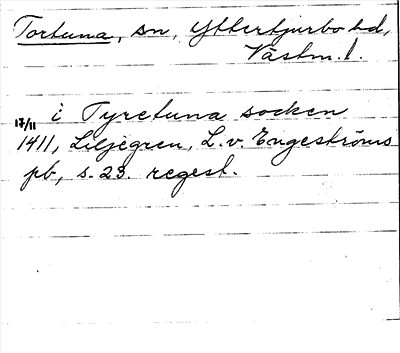 Tortuna, sn, Yttertjurbo hd,
Västm. l.
i Tyretuna socken
17/11 1411, Liljegren, L. v. Engeströms
pb, s. 23. regest.